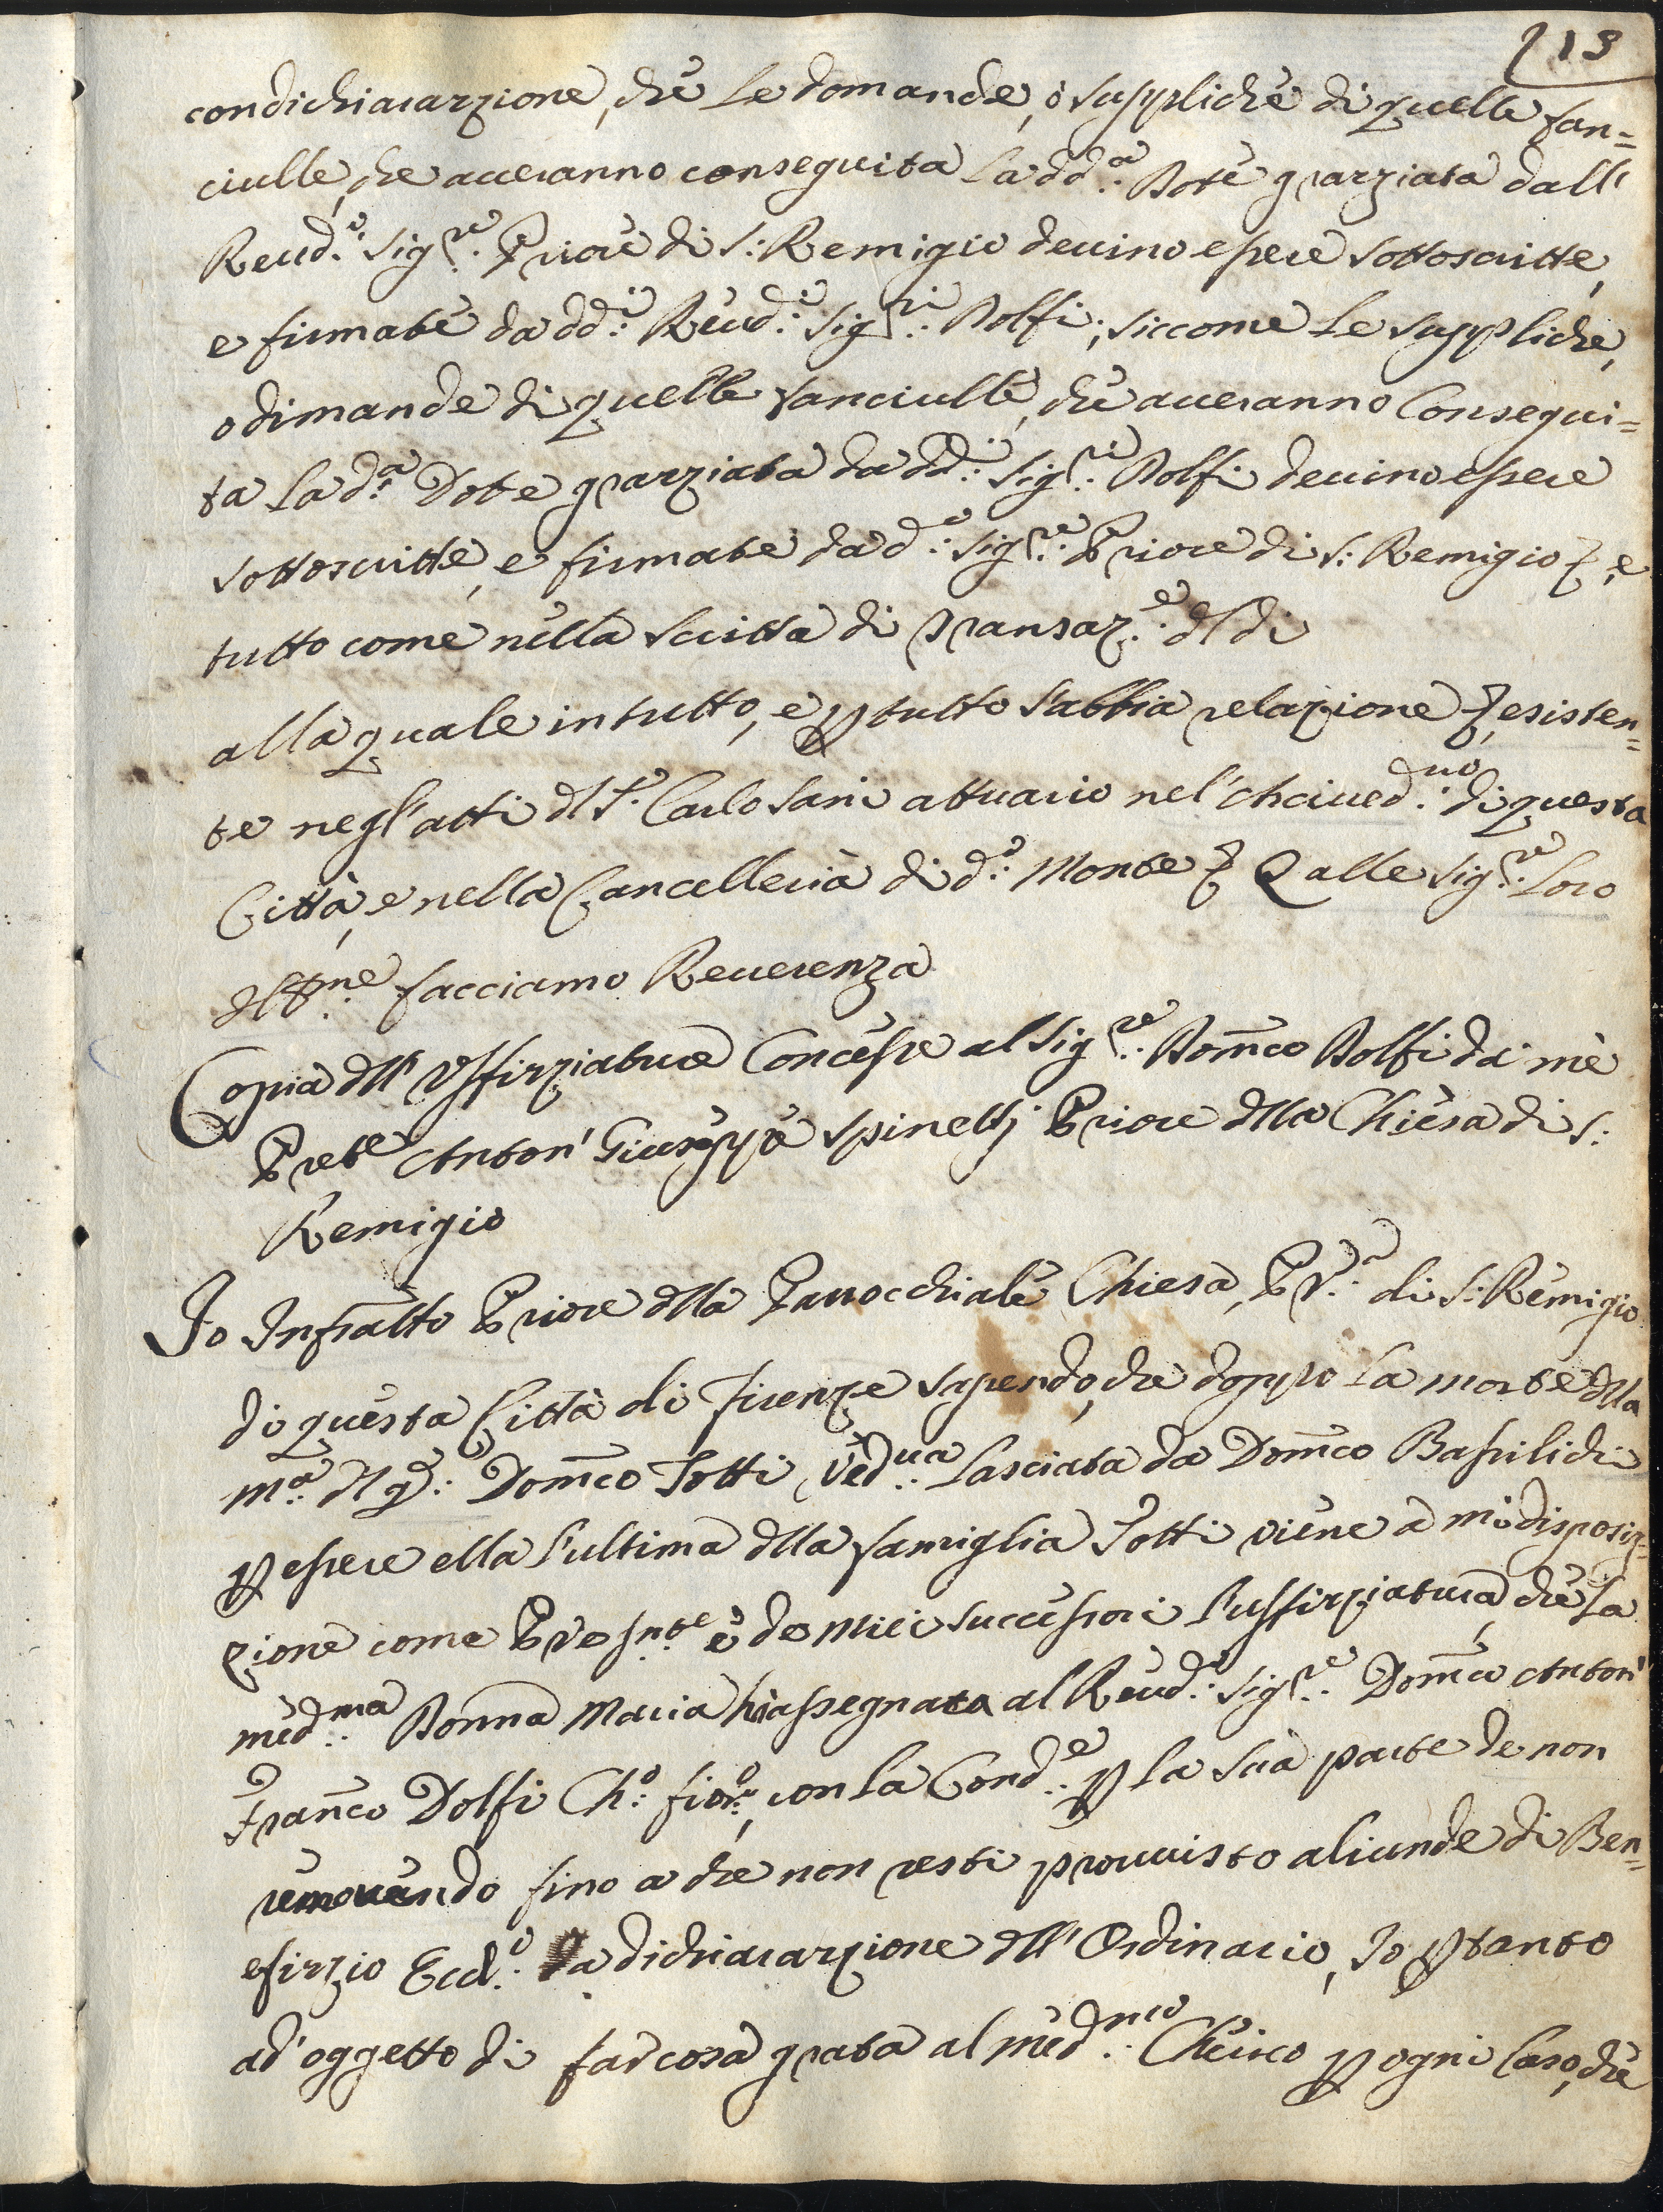 113
con dichiarazzione, che le domande, ò suppliche di quelle fan=
ciulle, che averanno conseguita la dd.ª Dote graziata dall'
Revd.º Sig.re Priore di S: Remigio devino essere sottoscritte,
e firmate da dd.i Revd.i Sig.ri Dolfi; siccome le suppliche,
o dimande di quelle fanciulle, che averanno Consegui=
ta la d.ª Dote graziata da dd.i Sig.ri Dolfi devino essere
sottoscritte, e firmate da d.º Sig.re Priore di S: Remigio &, e
tutto come nella Scritta di Transaz.e dl dì
alla quale in tutto, e p tutto s'abbia relazione &, esisten=
te negl'atti dl S.r Carlo Sani attuario nel'Arcived.no di questa
Città, e nella Cancelleria di d.º Monte & Q alle Sig.re Loro
Ill.me facciamo Reverenza
Copia dll' Uffizziatura Concessa al Sig.re Dom̃co Dolfi da mè
Prete Anton' Giuseppe Spinelli Priore dlla Chiesa di S:
Remigio
Io Infratto Priore dlla Parrocchiale Chiesa, Pr.ª di S: Remigio
di questa Città di Firenze sapendo, che doppo la morte dlla
m.ª dl q: Dom̃co Totti, ved.va lasciata da Dom̃co Bassilichi
p essere ella l'ultima dlla famiglia Totti viene a mia disposiz=
zione come Pre snte e de miei successori l'uffizziatura, che la
med.ma Donna Maria hà assegnata al Revd.º Sig.re Dom̃co Anton'
Fran̄co Dolfi Ch.º fior.º, con la Cond.e p la sua parte de non
removendo fino a che non resti provvisto aliunde di Ben=
efizzio Eccl.º da dichiarazzione dll' Ordinario, Io p tanto
ad' oggetto di far cosa grata al med.mo Cherico p ogni Caso, che